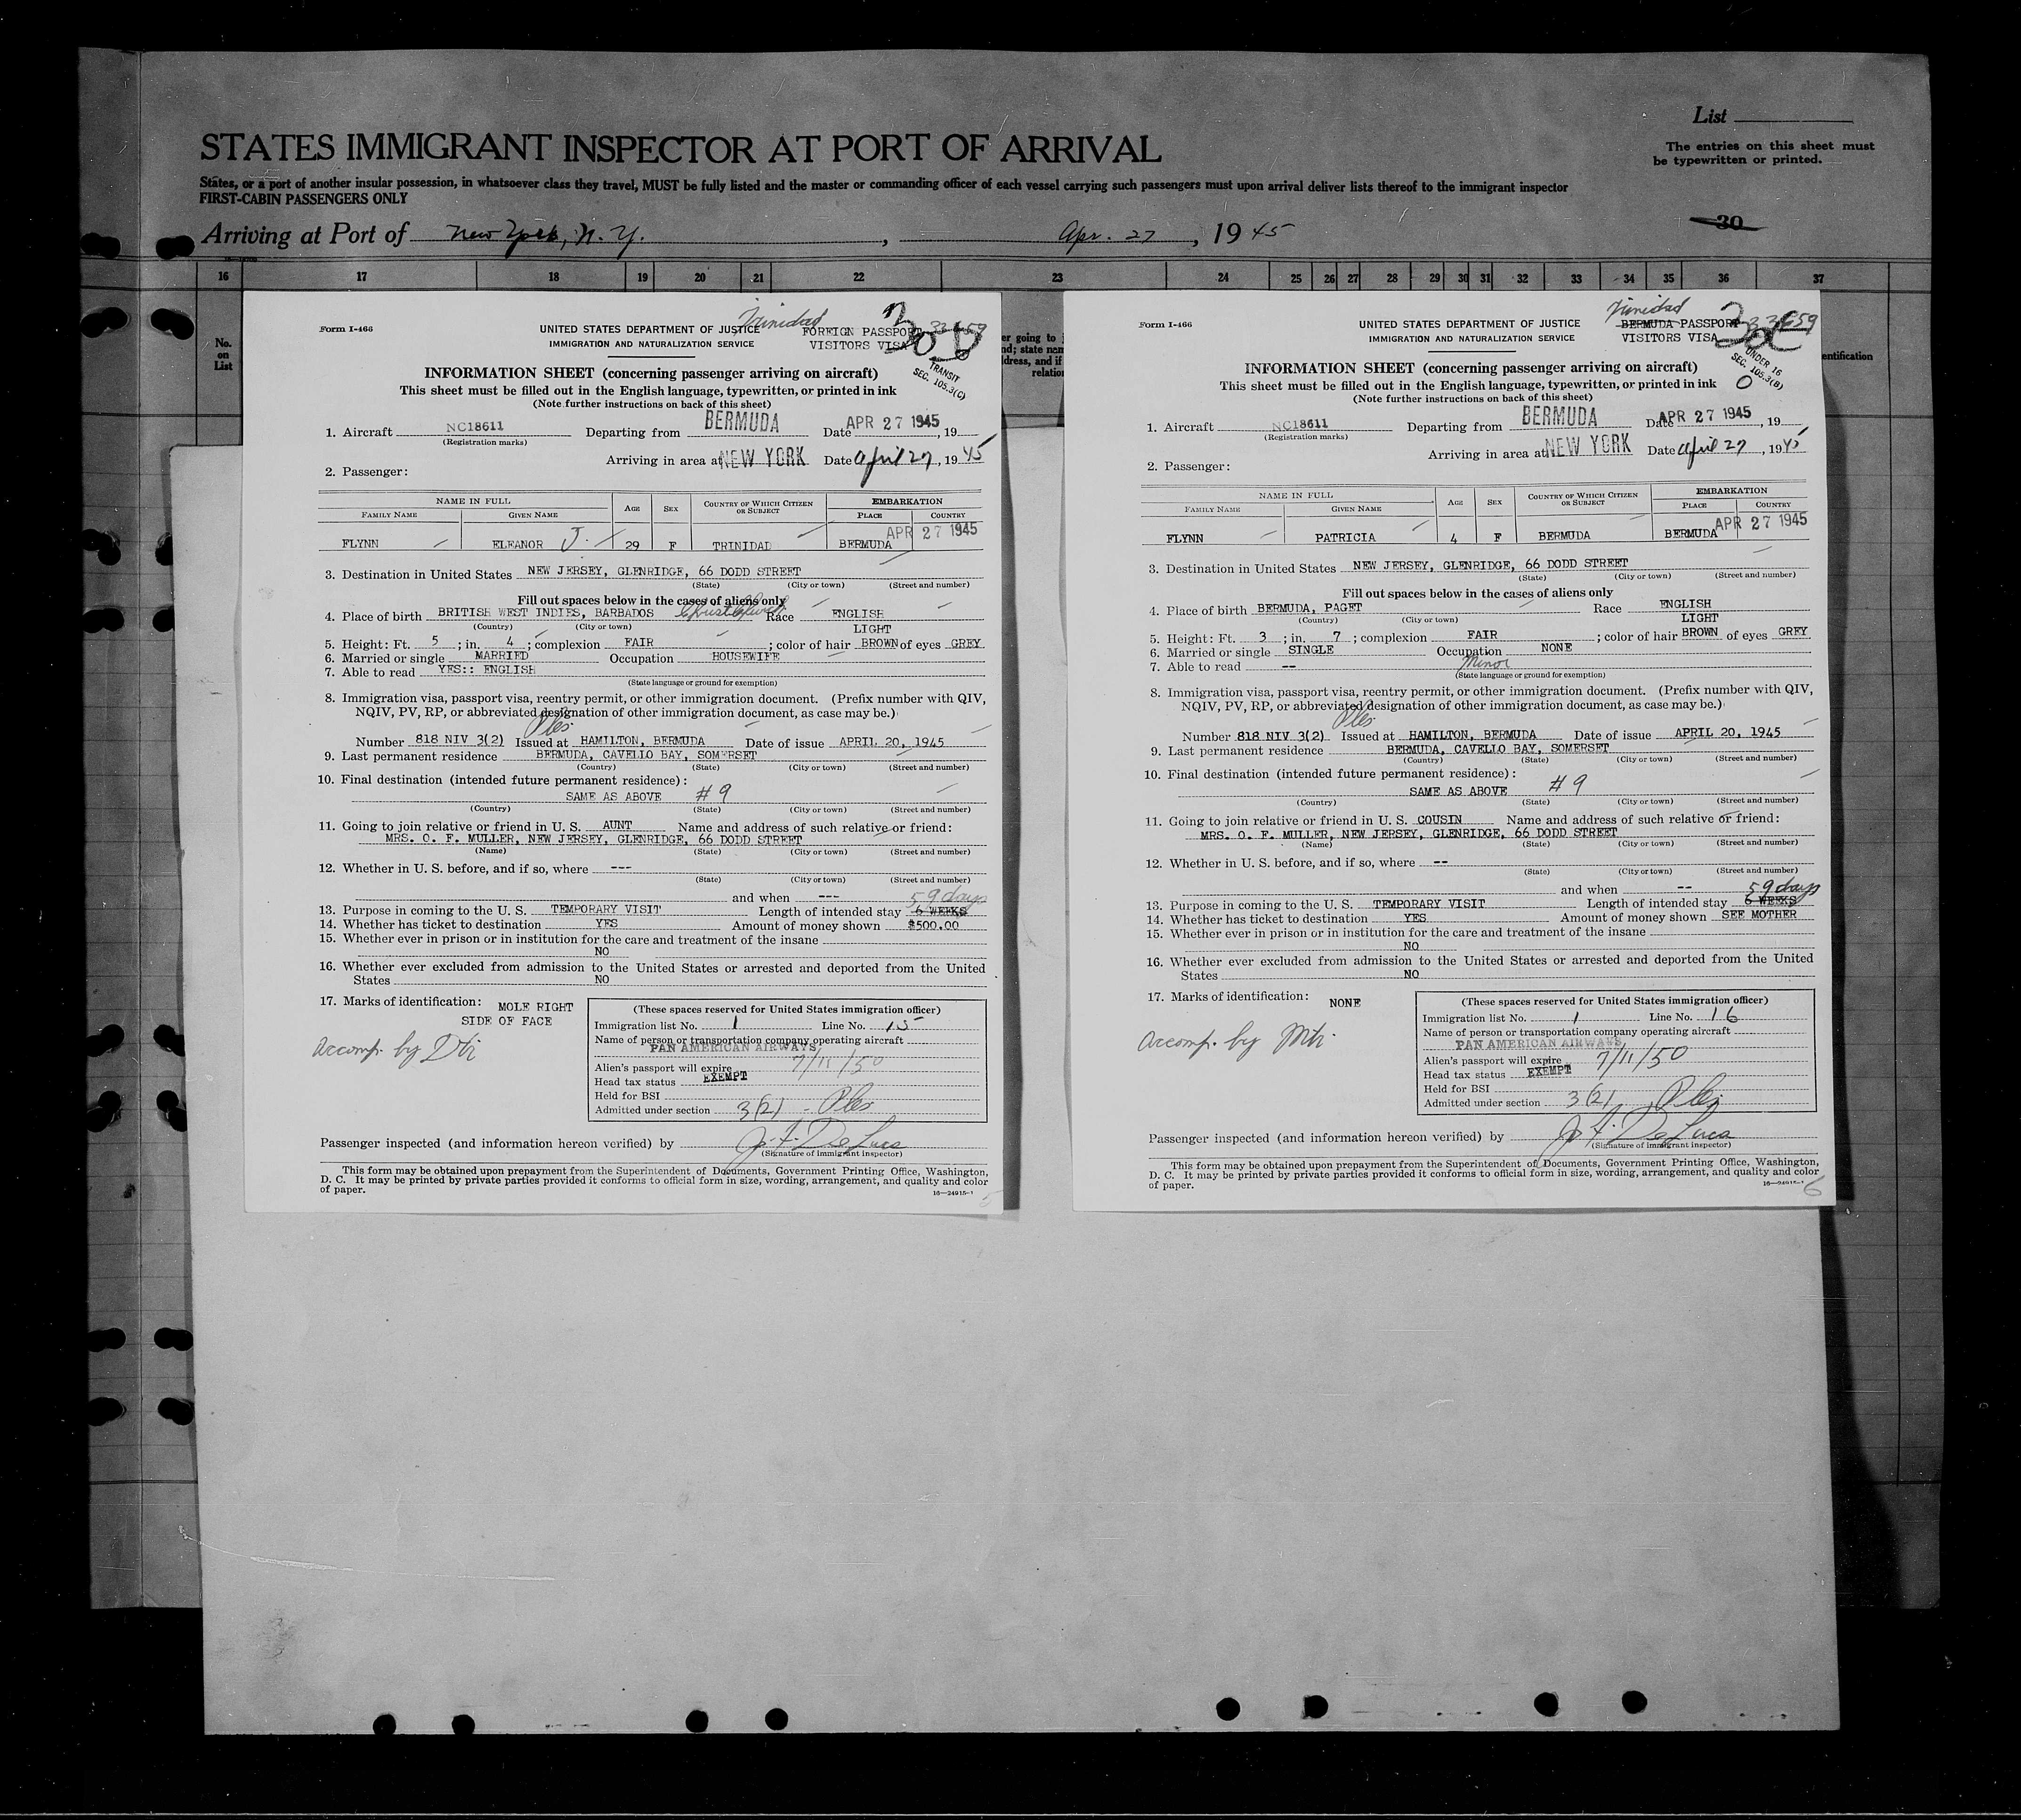 List
STATES IMMIGRANT INSPECTOR AT PORT OF ARRIVAL
The entries on this sheet must
be typewritten or printed.
States, or a port of another insular possession, in whatsoever class they travel, MUST be fully listed and the master or commanding officer of each vessel carrying such passengers must upon arrival deliver lists thereof to the immigrant inspector
FIRST-CABIN PASSENGERS ONLY
30
Arriving at Port of New York, N. Y. , Apr. 27 , 19 45
16 17 18 19 20 21 22 23 24 25 26 27 28 29 30 31 32 33 34 35 36 37
No.
on
List
Form I-466
UNITED STATES DEPARTMENT OF JUSTICE
Trinidad
FOREIGN PASSPORT
IMMIGRATION AND NATURALIZATION SERVICE
VISITORS VISA
TRANSIT
SEC. 105.3(C)
INFORMATION SHEET (concerning passenger arriving on aircraft)
This sheet must be filled out in the English language, typewritten, or printed in ink
(Note further instructions on back of this sheet)
1. Aircraft NC18611 Departing from BERMUDA Date APR 27 1945 , 19
(Registration marks)
Arriving in area at NEW YORK Date April 27 , 19 45
2. Passenger:
NAME IN FULL AGE SEX COUNTRY OF WHICH CITIZEN OR SUBJECT EMBARKATION
FAMILY NAME GIVEN NAME PLACE COUNTRY
APR 27 1945
FLYNN ELEANOR J. 29 F TRINIDAD BERMUDA
3. Destination in United States NEW JERSEY, GLENRIDGE, 66 DODD STREET
(State) (City or town) (Street and number)
Fill out spaces below in the cases of aliens only
4. Place of birth BRITISH WEST INDIES, BARBADOS Christ Church Race ENGLISH
(Country) (City or town) LIGHT
5. Height: Ft. 5 ; in. 4 ; complexion FAIR ; color of hair BROWN of eyes GREY
6. Married or single MARRIED Occupation HOUSEWIFE
7. Able to read YES:: ENGLISH
(State language or ground for exemption)
8. Immigration visa, passport visa, reentry permit, or other immigration document. (Prefix number with QIV,
NQIV, PV, RP, or abbreviated designation of other immigration document, as case may be.)
Number 818 NIV 3(2) Issued at HAMILTON, BERMUDA Date of issue APRIL 20, 1945
9. Last permanent residence BERMUDA, CAVELLO BAY, SOMERSET
(Country) (State) (City or town) (Street and number)
10. Final destination (intended future permanent residence):
SAME AS ABOVE # 9
(Country) (State) (City or town) (Street and number)
11. Going to join relative or friend in U. S. AUNT Name and address of such relative or friend:
MRS. O. F. MULLER, NEW JERSEY, GLENRIDGE, 66 DODD STREET
(Name) (State) (City or town) (Street and number)
12. Whether in U. S. before, and if so, where ---
(State) (City or town) (Street and number)
and when --- 59 days
13. Purpose in coming to the U. S. TEMPORARY VISIT Length of intended stay 6 WEEKS
14. Whether has ticket to destination YES Amount of money shown $500.00
15. Whether ever in prison or in institution for the care and treatment of the insane
NO
16. Whether ever excluded from admission to the United States or arrested and deported from the United
States NO
17. Marks of identification: MOLE RIGHT
SIDE OF FACE
Accomp. by Dtr
(These spaces reserved for United States immigration officer)
Immigration list No. 1 Line No. 15
Name of person or transportation company operating aircraft
PAN AMERICAN AIRWAYS
Alien's passport will expire 7/11/50
Head tax status EXEMPT
Held for BSI
Admitted under section 3(2)
Passenger inspected (and information hereon verified) by J. F. DeLuca
(Signature of immigrant inspector)
This form may be obtained upon prepayment from the Superintendent of Documents, Government Printing Office, Washington,
D. C. It may be printed by private parties provided it conforms to official form in size, wording, arrangement, and quality and color
of paper.
16—24915-1
5
er going to
nd; state nam
dress, and if
relation
entification
Form I-466
UNITED STATES DEPARTMENT OF JUSTICE
Trinidad
BERMUDA PASSPORT
IMMIGRATION AND NATURALIZATION SERVICE
VISITORS VISA
UNDER 16
SEC. 105.3(B)
INFORMATION SHEET (concerning passenger arriving on aircraft)
This sheet must be filled out in the English language, typewritten, or printed in ink
(Note further instructions on back of this sheet)
1. Aircraft NC18611 Departing from BERMUDA Date APR 27 1945 , 19
(Registration marks)
Arriving in area at NEW YORK Date April 27 , 19 45
2. Passenger:
NAME IN FULL AGE SEX COUNTRY OF WHICH CITIZEN OR SUBJECT EMBARKATION
FAMILY NAME GIVEN NAME PLACE COUNTRY
APR 27 1945
FLYNN PATRICIA 4 F BERMUDA BERMUDA
3. Destination in United States NEW JERSEY, GLENRIDGE, 66 DODD STREET
(State) (City or town) (Street and number)
Fill out spaces below in the cases of aliens only
4. Place of birth BERMUDA, PAGET Race ENGLISH
(Country) (City or town) LIGHT
5. Height: Ft. 3 ; in. 7 ; complexion FAIR ; color of hair BROWN of eyes GREY
6. Married or single SINGLE Occupation NONE
7. Able to read -- Minor
(State language or ground for exemption)
8. Immigration visa, passport visa, reentry permit, or other immigration document. (Prefix number with QIV,
NQIV, PV, RP, or abbreviated designation of other immigration document, as case may be.)
Number 818 NIV 3(2) Issued at HAMILTON, BERMUDA Date of issue APRIL 20, 1945
9. Last permanent residence BERMUDA, CAVELLO BAY, SOMERSET
(Country) (State) (City or town) (Street and number)
10. Final destination (intended future permanent residence):
SAME AS ABOVE # 9
(Country) (State) (City or town) (Street and number)
11. Going to join relative or friend in U. S. COUSIN Name and address of such relative or friend:
MRS. O. F. MULLER, NEW JERSEY, GLENRIDGE, 66 DODD STREET
(Name) (State) (City or town) (Street and number)
12. Whether in U. S. before, and if so, where --
(State) (City or town) (Street and number)
and when -- 59 days
13. Purpose in coming to the U. S. TEMPORARY VISIT Length of intended stay 6 WEEKS
14. Whether has ticket to destination YES Amount of money shown SEE MOTHER
15. Whether ever in prison or in institution for the care and treatment of the insane
NO
16. Whether ever excluded from admission to the United States or arrested and deported from the United
States NO
17. Marks of identification: NONE
Accomp. by Mtr.
(These spaces reserved for United States immigration officer)
Immigration list No. 1 Line No. 16
Name of person or transportation company operating aircraft
PAN AMERICAN AIRWAYS
Alien's passport will expire 7/11/50
Head tax status EXEMPT
Held for BSI
Admitted under section 3(2)
Passenger inspected (and information hereon verified) by J. F. DeLuca
(Signature of immigrant inspector)
This form may be obtained upon prepayment from the Superintendent of Documents, Government Printing Office, Washington,
D. C. It may be printed by private parties provided it conforms to official form in size, wording, arrangement, and quality and color
of paper.
16—24915-1
6